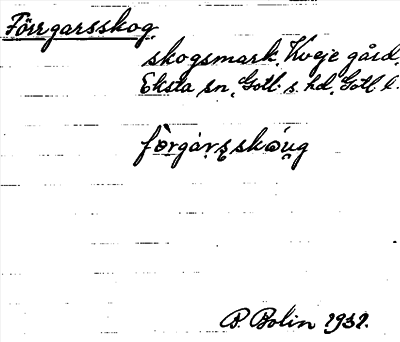 Förrgarsskog
skogsmark, Kveje gård,
Eksta sn, Gotl. s. hd, Gotl. l.
fòrgarsskóug
P. Bolin 1932.